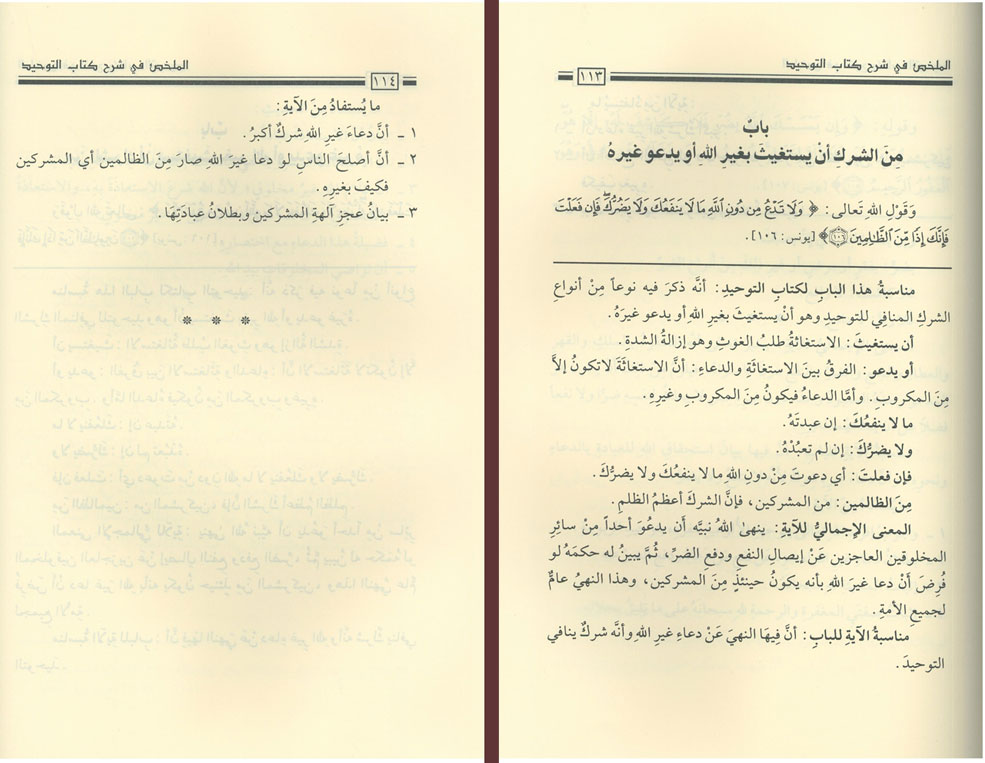 الملخص في شرح كتاب التوحيد
١١٣
بابٌ
مِنَ الشرك أنْ يستغيثَ بغيرِ اللهِ أو يدعو غيرهُ
وَقَوْلِ اللهِ تَعالى: ﴿ وَلَا تَدْعُ مِن دُونِ ٱللَّهِ مَا لَا يَنفَعُكَ وَلَا يَضُرُّكَۖ فَإِن فَعَلْتَ
فَإِنَّكَ إِذًا مِّنَ ٱلظَّٰلِمِينَ ۝١٠٦﴾ [يونس: ١٠٦].
مناسبةُ هذا البابِ لكتابِ التوحيدِ: أنَّه ذكرَ فيه نوعاً مِنْ أنواعِ
الشركِ المنافِي للتوحيدِ وهو أنْ يستغيثَ بغيرِ اللهِ أو يدعو غيرَهُ.
أن يستغيثَ: الاستغاثةُ طلبُ الغوثِ وهو إزالةُ الشدةِ.
أو يدعو: الفرقُ بينَ الاستغاثةِ والدعاءِ: أنَّ الاستغاثةَ لاتكونُ إلاَّ
مِنَ المكروبِ. وأمَّا الدعاءُ فيكونُ مِنَ المكروبِ وغيرِهِ.
ما لا ينفعُكَ: إن عبدتَهُ.
ولا يضرُّكَ: إن لم تعبُدْهُ.
فإن فعلتَ: أي دعوتَ مِنْ دونِ اللهِ ما لا ينفعُكَ ولا يضرُّكَ.
مِنَ الظالمين: مَن المشركين، فإنَّ الشركَ أعظمُ الظلمِ.
المعنى الإجماليُّ للآيةِ: ينهىٰ اللهُ نبيَّه أن يدعُوَ أحداً مِنْ سائرِ
المخلوقين العاجزين عَنْ إيصالِ النفعِ ودفعِ الضرِّ، ثُمَّ يبينُ له حكمَهُ لو
فُرِضَ أَنْ دعا غيرَ اللهِ بأنه يكونُ حينئذٍ مِنَ المشركين، وهذا النهيُ عامٌّ
لجميعِ الأمةِ.
مناسبةُ الآيةِ للبابِ: أنَّ فيها النهيَ عَنْ دعاءِ غيرِ اللهِ وأنَّه شركٌ ينافي
التوحيدَ.
الملخص في شرح كتاب التوحيد
١١٤
ما يُستفادُ مِنَ الآيةِ:
١ ـ أنَّ دعاءَ غيرِ اللهِ شركٌ أكبرُ.
٢ ـ أنَّ أصلحَ الناسِ لو دعا غيرَ اللهِ صارَ مِنَ الظالمين أي المشركين
فكيفَ بغيرِهِ.
٣ ـ بيانُ عجزِ آلهةِ المشركين وبطلانُ عبادَتِهَا.
* * *